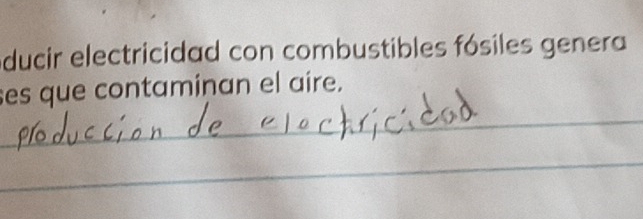 ducir electricidad con combustibles fósiles genera
es que contaminan el aire.
producción de elochricidad